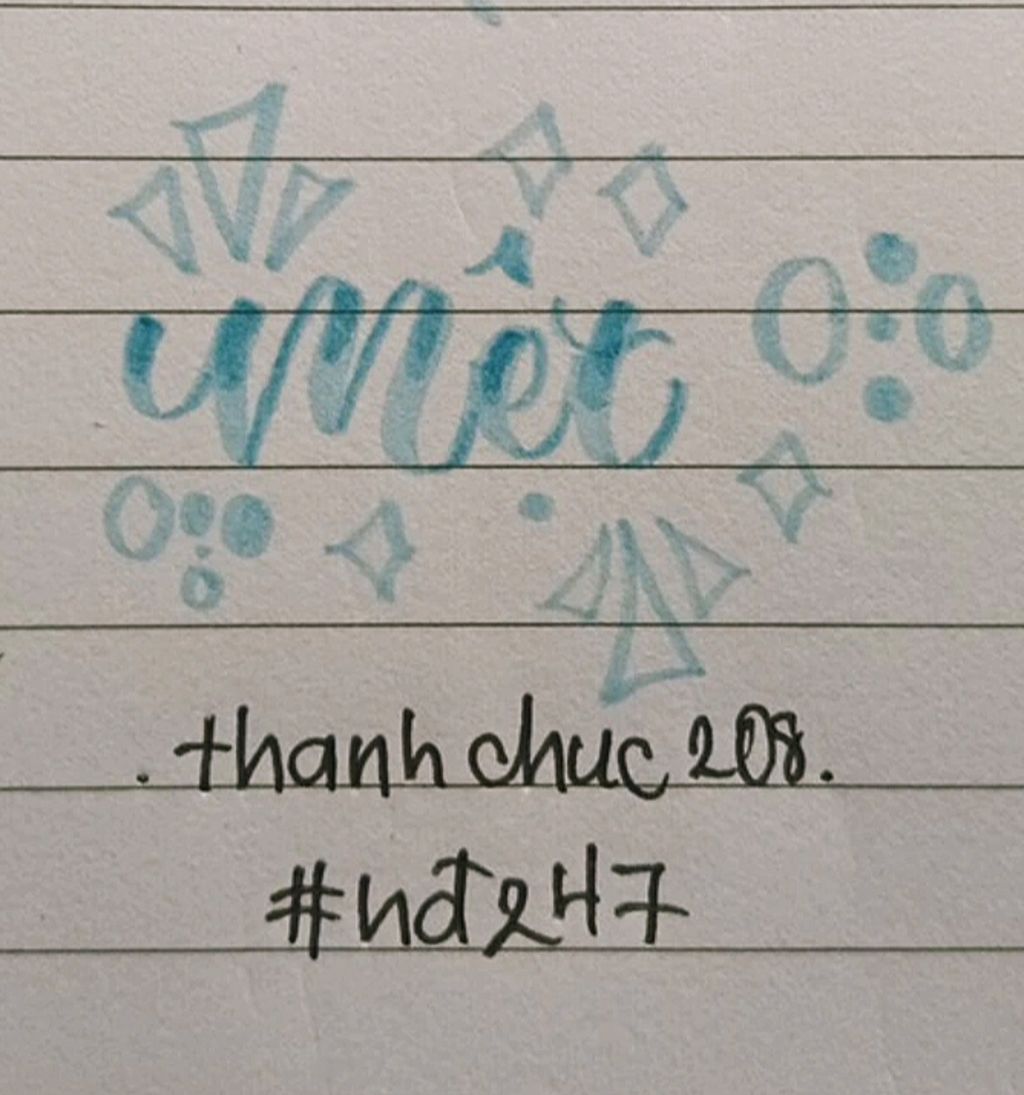 mệt
.thanh chuc 208.
#nđ247